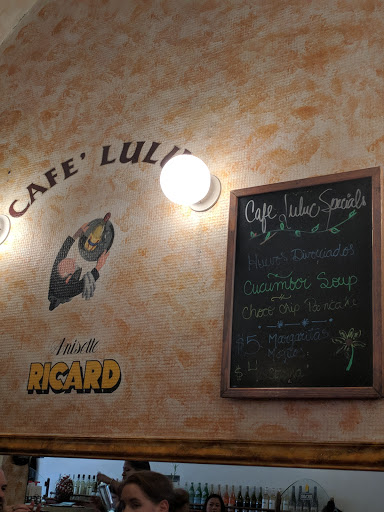 CAFE' LULU
Anisette
RICARD
Cafe Luluc Specials
Huevos Divorciados
Cucumber Soup
Choco Chip Pancake
$5 Margaritas
Mojitos
$4